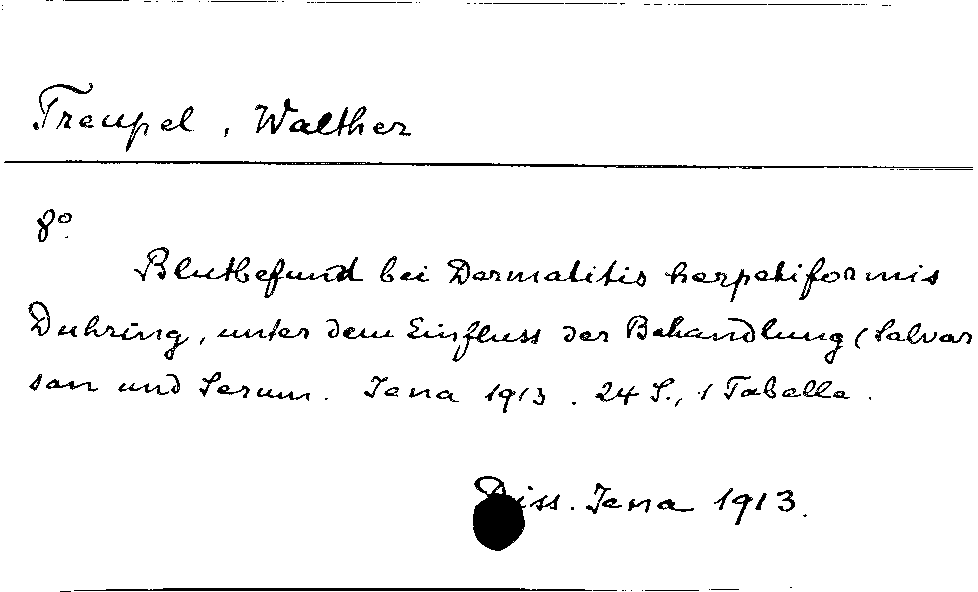 Treupel, Walther
8°.
Blutbefund bei Dermatitis herpetiformis
Duhring, unter dem Einfluss der Behandlung (Salvar
san und Serum. Jena 1913. 24 S., 1 Tabelle.
Diss. Jena 1913.